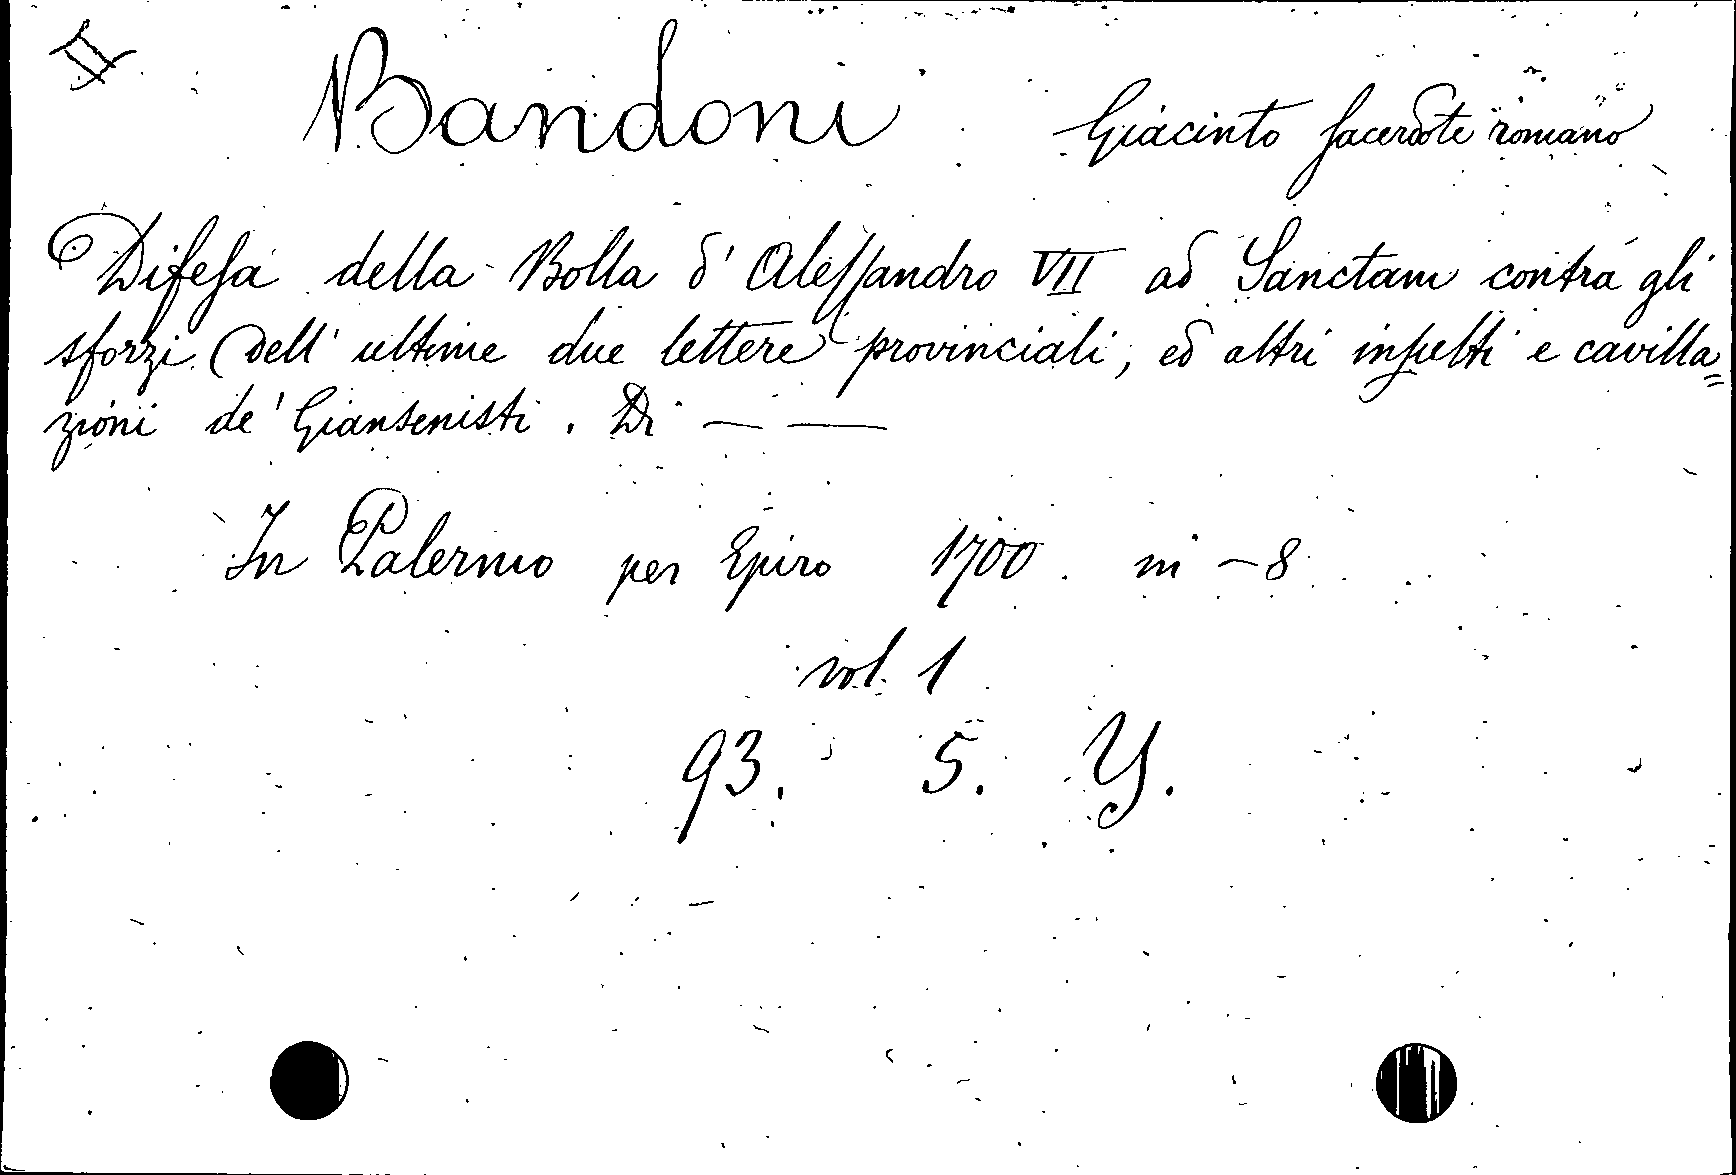 II
Bandoni Giacinto sacerdote romano
Difesa della Bolla d' Alessandro VII ad Sanctam contra gli
sforzi dell' ultime due lettere provinciali, ed altri insulti e cavilla=
zioni de' Giansenisti. Di — —
In Palermo per Epiro 1700. in -8
vol. 1
93. 5. Y.